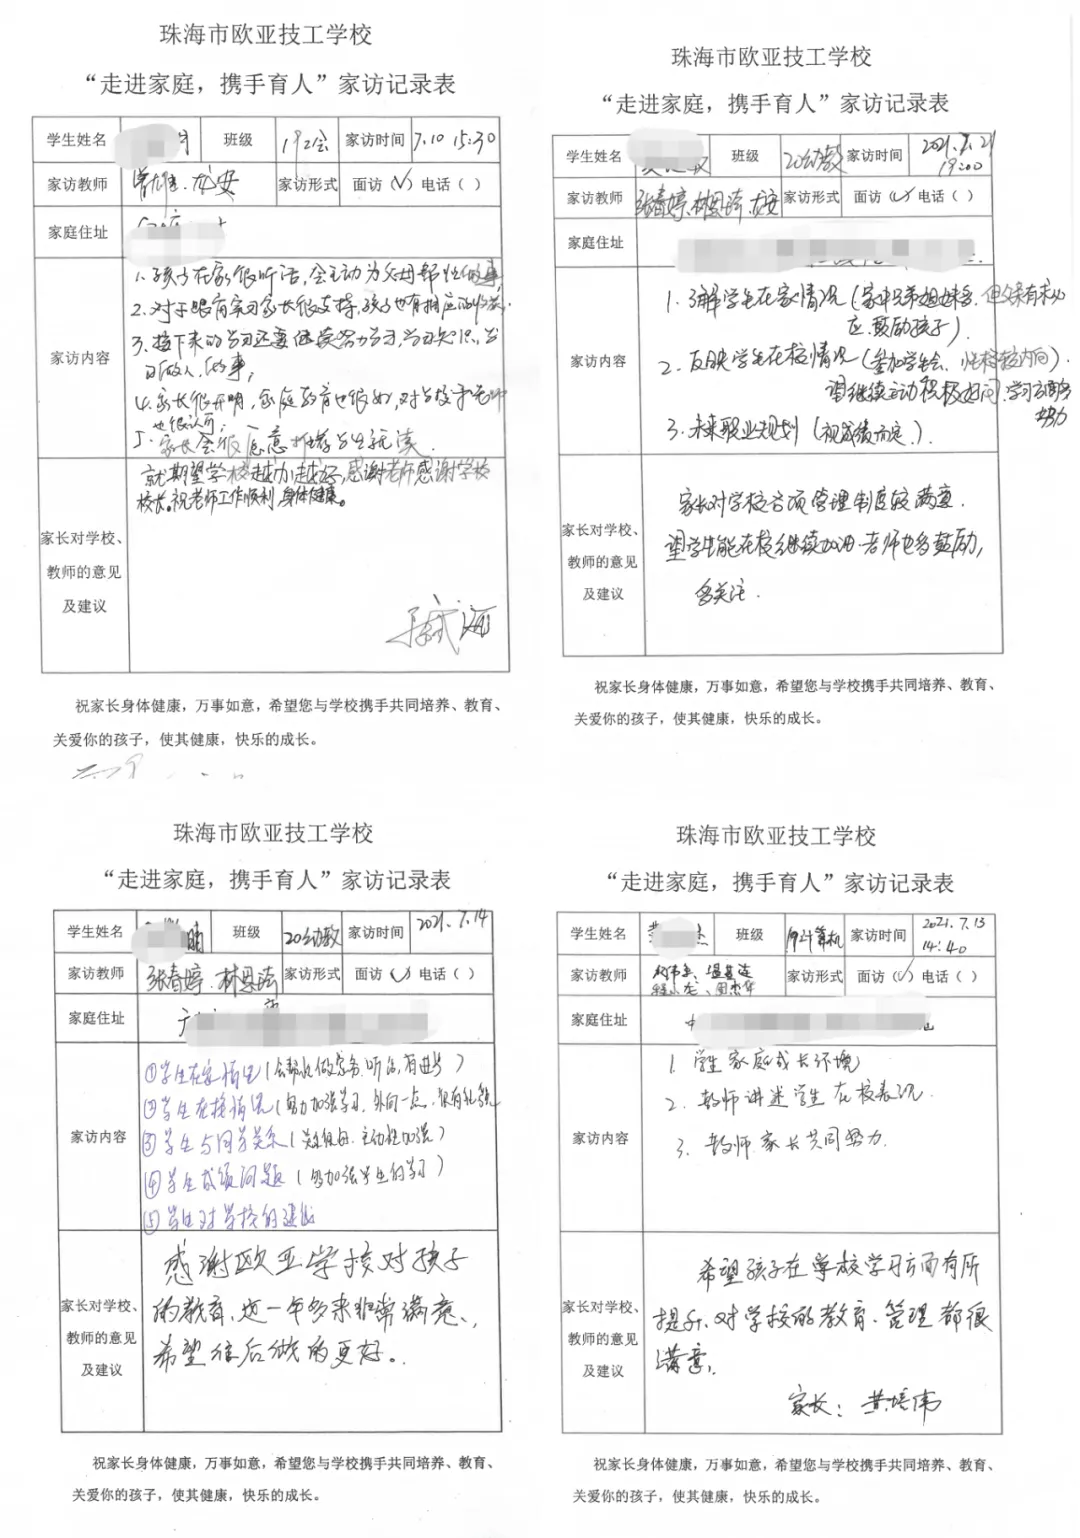 珠海市欧亚技工学校
“走进家庭，携手育人”家访记录表
学生姓名 班级 19会 家访时间 7.10 15:30
家访教师 家访形式 面访（√）电话（ ）
家庭住址
家访内容
1.孩子在家很听话,会主动为父母帮忙做事
2.对于跟岗实习家长很支持,孩子也有相应的
3.接下来的学习还要继续努力学习,学习知识,学
习做人,做事;
4.家长很开明,家庭教育也很好,对学校和老师
也很认可;
5.家长会很愿意推荐学生就读
家长对学校、教师的意见及建议
就期望学校越办越好,感谢老师感谢学校
校长。祝老师工作顺利身体健康。
祝家长身体健康，万事如意，希望您与学校携手共同培养、教育、
关爱你的孩子，使其健康，快乐的成长。
珠海市欧亚技工学校
“走进家庭，携手育人”家访记录表
学生姓名 班级 20幼教 家访时间 2021.7.21
19:00
家访教师 张春婷.林思 家访形式 面访（√）电话（ ）
家庭住址
家访内容
1.了解学生在家情况(家中兄弟姐妹多,但
鼓励孩子).
2.反映学生在校情况(参加学生会,性格较内向).
望继续主动积极好问,学习方面多
努力
3.未来职业规划(视成绩而定).
家长对学校、教师的意见及建议
家长对学校各项管理制度较满意.
望学生能在校继续加油.老师也多鼓励,
多关注.
祝家长身体健康，万事如意，希望您与学校携手共同培养、教育、
关爱你的孩子，使其健康，快乐的成长。
珠海市欧亚技工学校
“走进家庭，携手育人”家访记录表
学生姓名 班级 20幼教 家访时间 2021.7.14
家访教师 张春婷.林思 家访形式 面访（√）电话（ ）
家庭住址
家访内容
①学生在家情况(会帮忙做家务.听话,有进步)
②学生在校情况(努力加强学习.外向一点.
③学生与同学关系(关系很好.主动性加强)
④学生成绩问题(多加强学生的学习)
⑤学生对学校的建议
家长对学校、教师的意见及建议
感谢欧亚学校对孩子
的教育,这一年多来非常满意,
希望往后做的更好。
祝家长身体健康，万事如意，希望您与学校携手共同培养、教育、
关爱你的孩子，使其健康，快乐的成长。
珠海市欧亚技工学校
“走进家庭，携手育人”家访记录表
学生姓名 班级 19计算机 家访时间 2021.7.13
14:40
家访教师 家访形式 面访（√）电话（ ）
家庭住址
家访内容
1.学生家庭成长环境
2.教师讲述学生在校表现.
3.教师.家长共同努力.
家长对学校、教师的意见及建议
希望孩子在学校学习方面有所
提升,对学校的教育、管理都很
满意,
家长:黄培伟
祝家长身体健康，万事如意，希望您与学校携手共同培养、教育、
关爱你的孩子，使其健康，快乐的成长。